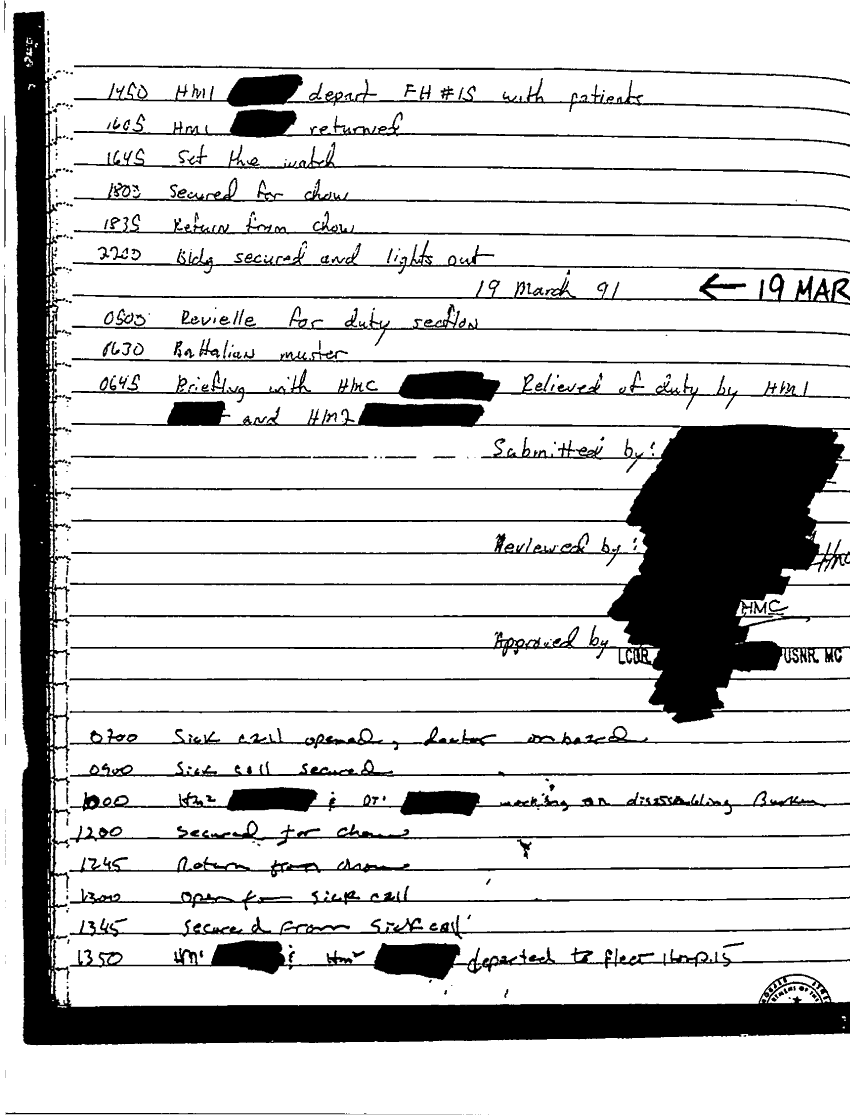 1450 HM1 depart FH #15 with patients
1605 HM1 returned
1645 Set the watch
1803 Secured for chow
1835 Return from chow
2200 Bldg secured and lights out
19 March 91 ← 19 MAR
0500 Revielle for duty section
0630 Battalian muster
0645 Briefing with HMC Relieved of duty by HM1
and HM2
Submitted by:
Reviewed by: HMC
HMC
Approved by
LCDR USNR, MC
0700 Sick call opened, doctor onboard
0900 Sick call secured
1000 HM2 & DT1 working on dissembling Bunker
1200 Secured for chow
1245 Return from chow
1300 Open for sick call
1345 Secured from Sick call
1350 HM1 & HM2 departed to fleet Hosp. 15